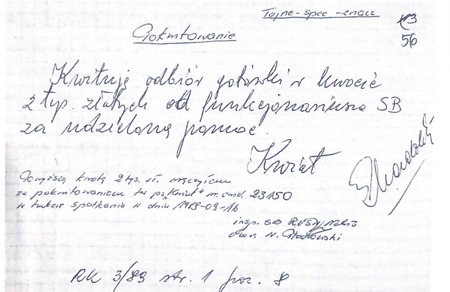 Tajne-spec-znacz
56
Pokwitowanie
Kwituję odbiór gotówki w kwocie
2 tyś. złotych od funkcjonariusza SB
za udzieloną pomoc.
Kwiat
Powyższą kwotę 2 tys. zł. wręczyłem
za pokwitowaniem tw ps "Kwiat" nr ewid. 23150
w trakcie spotkania w dniu
insp. SB
RK 3/89 str. 1 poz. 8